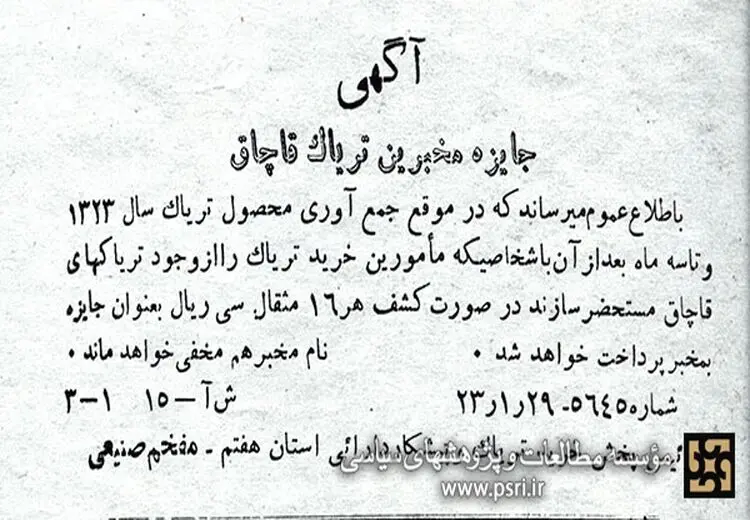 آگهی
جایزه مخبرین تریاك قاچاق
باطلاع عموم میرساند که در موقع جمع آوری محصول تریاك سال ۱۳۲۳
و تاسه ماه بعد از آن باشخاصیکه مأمورین خرید تریاك را از وجود تریاکهای
قاچاق مستحضر سازند در صورت کشف هر ۱۶ مثقال سی ریال بعنوان جایزه
بمخبر پرداخت خواهد شد . نام مخبر هم مخفی خواهد ماند .
شماره ۵۶۴۵-۲۹ر۱ر۲۳ ش آ - ۱۵ ۱-۳
پخش دارائی استان هفتم - مفخم صنیعی
مؤسسه مطالعات و پژوهشهای سیاسی
www.psri.ir